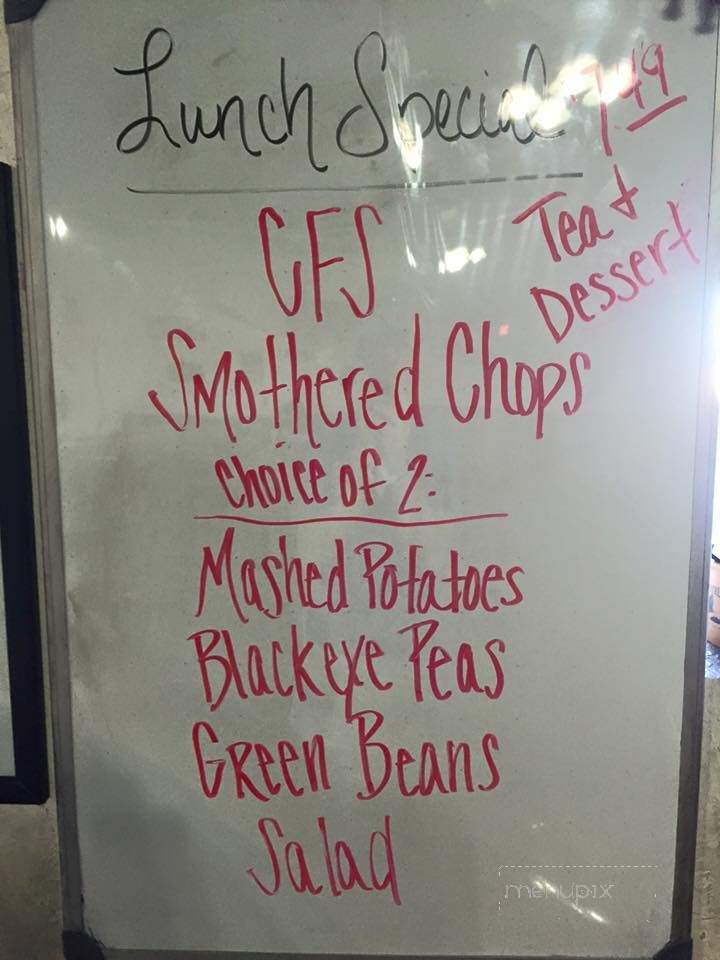 Lunch Special 7.49
Tea &
Dessert
CFS
Smothered Chops
choice of 2:
Mashed Potatoes
Blackeye Peas
Green Beans
Salad
menupix